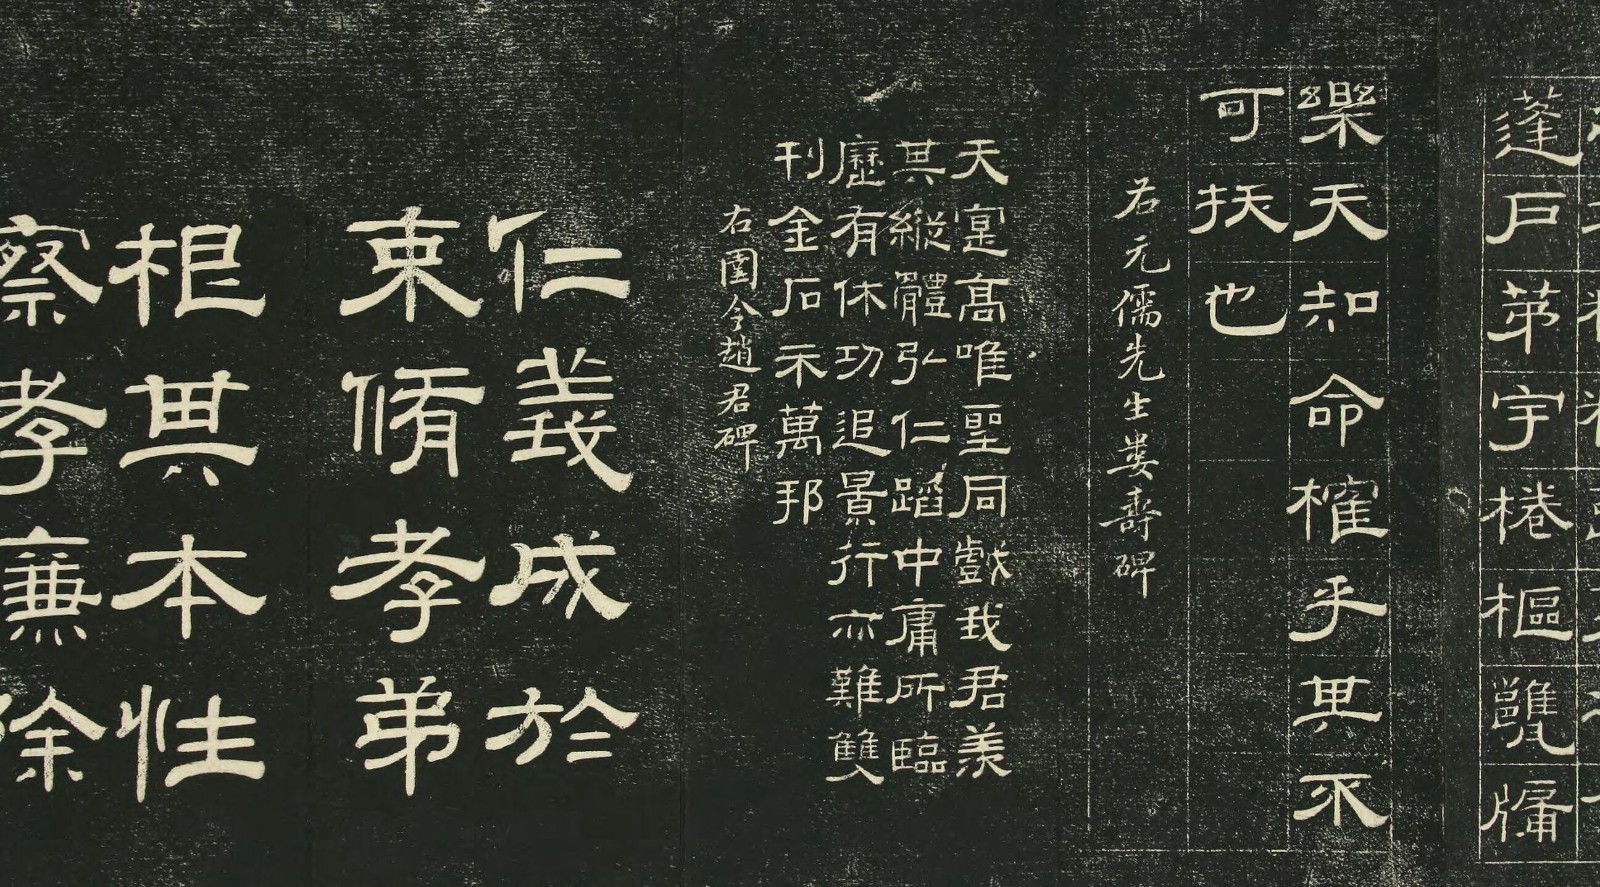 蓬戶茅宇棬樞甕牖
樂天知命榷乎其不
可拔也
右元儒先生婁壽碑
天寔高唯聖同戲我君羨
其縱體弘仁蹈中庸所臨
歷有休功追景行亦難雙
刊金石示萬邦
右圉令趙君碑
仁義成於
束脩孝弟
根其本性
察孝廉除